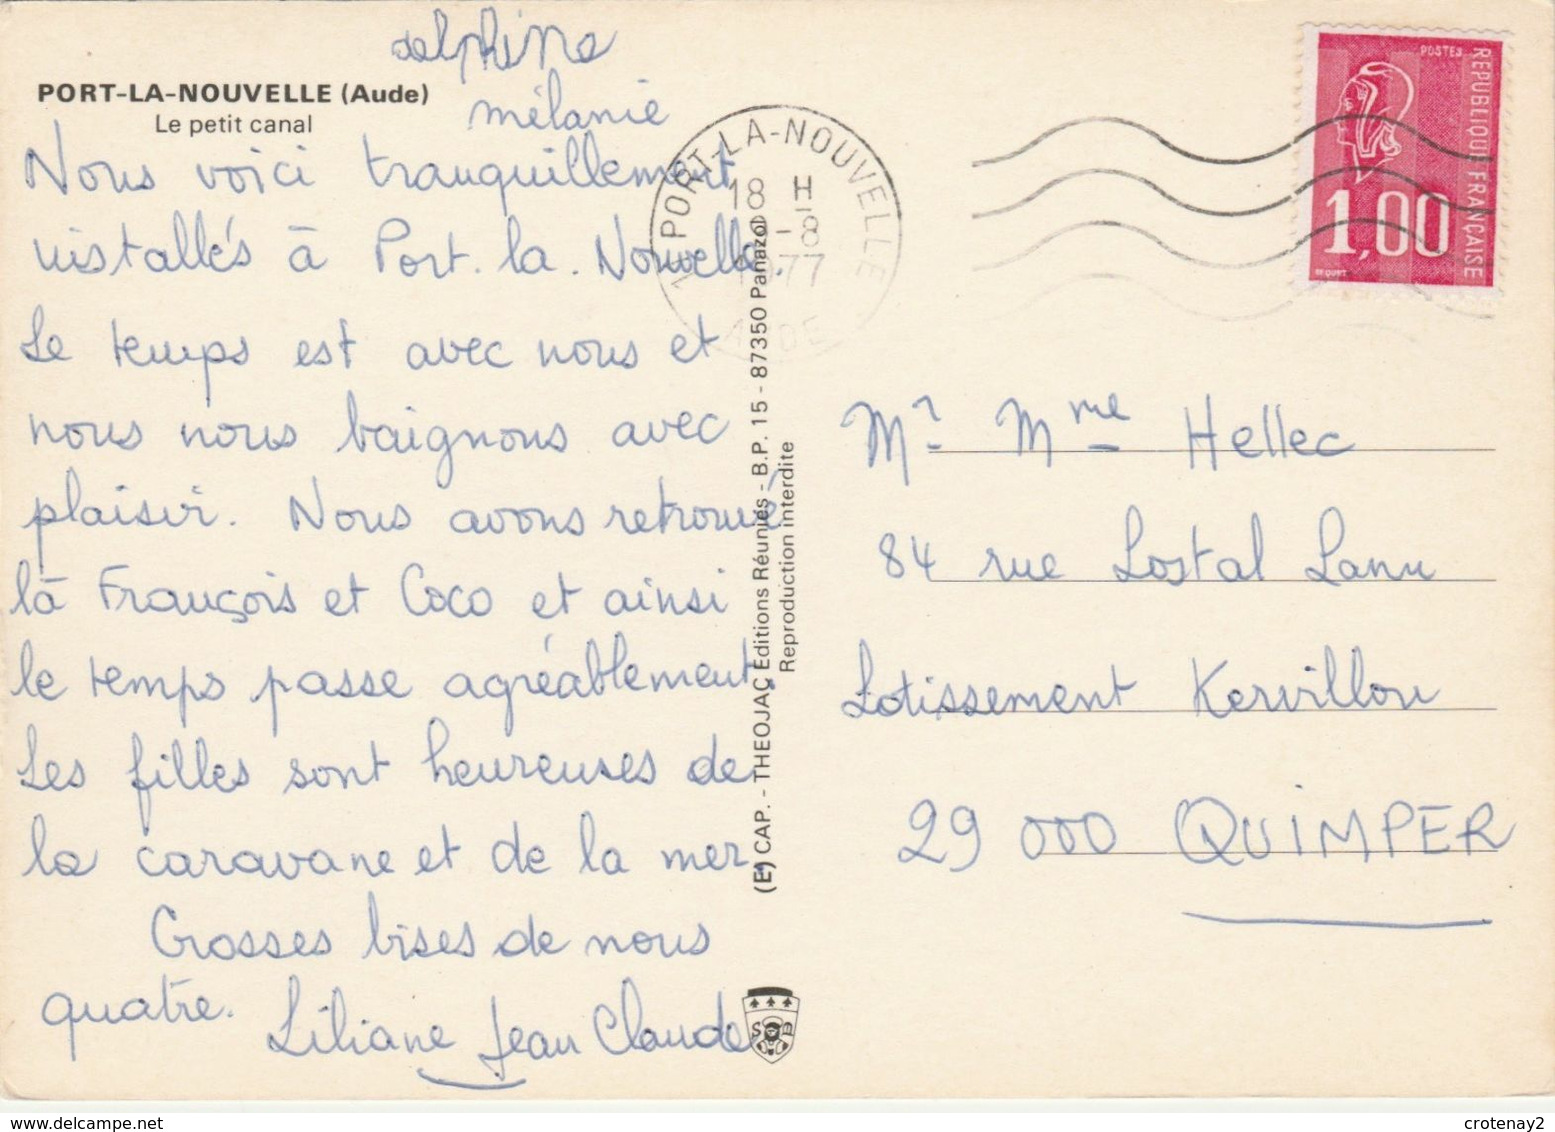 delphine
PORT-LA-NOUVELLE (Aude)
mélanie
Le petit canal
Nous voici tranquillement
installés à Port. la. Nouvelle.
Le temps est avec nous et
nous nous baignons avec
plaisir. Nous avons retrouvé
là François et Coco et ainsi
le temps passe agréablement.
Les filles sont heureuses de
la caravane et de la mer.
Grosses bises de nous
quatre.
Liliane Jean Claude
PORT-LA-NOUVELLE
18 H
-8
1977
AUDE
(E) CAP. - THEOJAC, Editions Réunies - B.P. 15 - 87350 Panazol
Reproduction interdite
POSTES
REPUBLIQUE FRANÇAISE
1,00
BEQUET
Mr Mme Hellec
84 rue Lostal Lanu
Lotissement Kervillou
29 000 QUIMPER
crotenay2